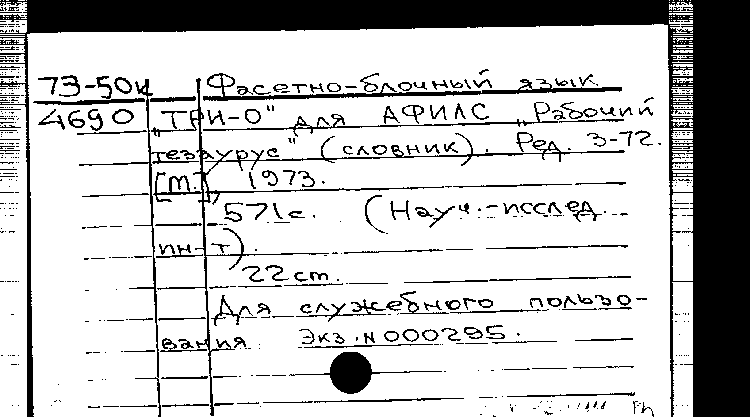 73-50к Фасетно-блочный язык
4690 „ТРИ-О" для АФИЛС „Рабочий
тезаурус" (словник). Ред. 3-72.
[М.], 1973.
571 с. (Науч.-исслед.
ин-т).
22 cm.
Для служебного пользо-
вания Экз. N 000295.